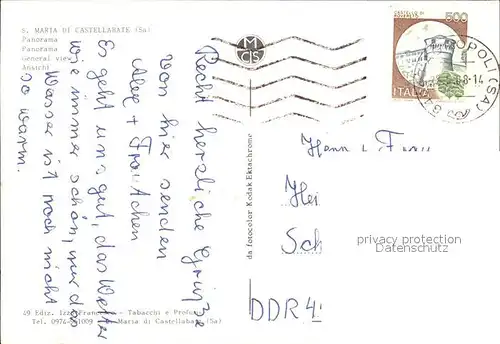 S. MARIA DI CASTELLABATE (Sa)
Panorama
Panorama
General view
Ansicht
Recht herzliche Grüße
von hier senden
+ Frauchen
Es geht uns gut, das Wetter
wie immer schön, nur das
Wasser ist noch nicht
so warm.
49 Ediz. - Tabacchi e
Tel. 0974 1009 Maria di Castellabate (Sa)
da fotocolor Kodak Ektachrome
MCS
500
ITALIA
POLI (SA)
8-14
Herrn + Frau
Hei
Sch
DDR 4
privacy protection
watermark